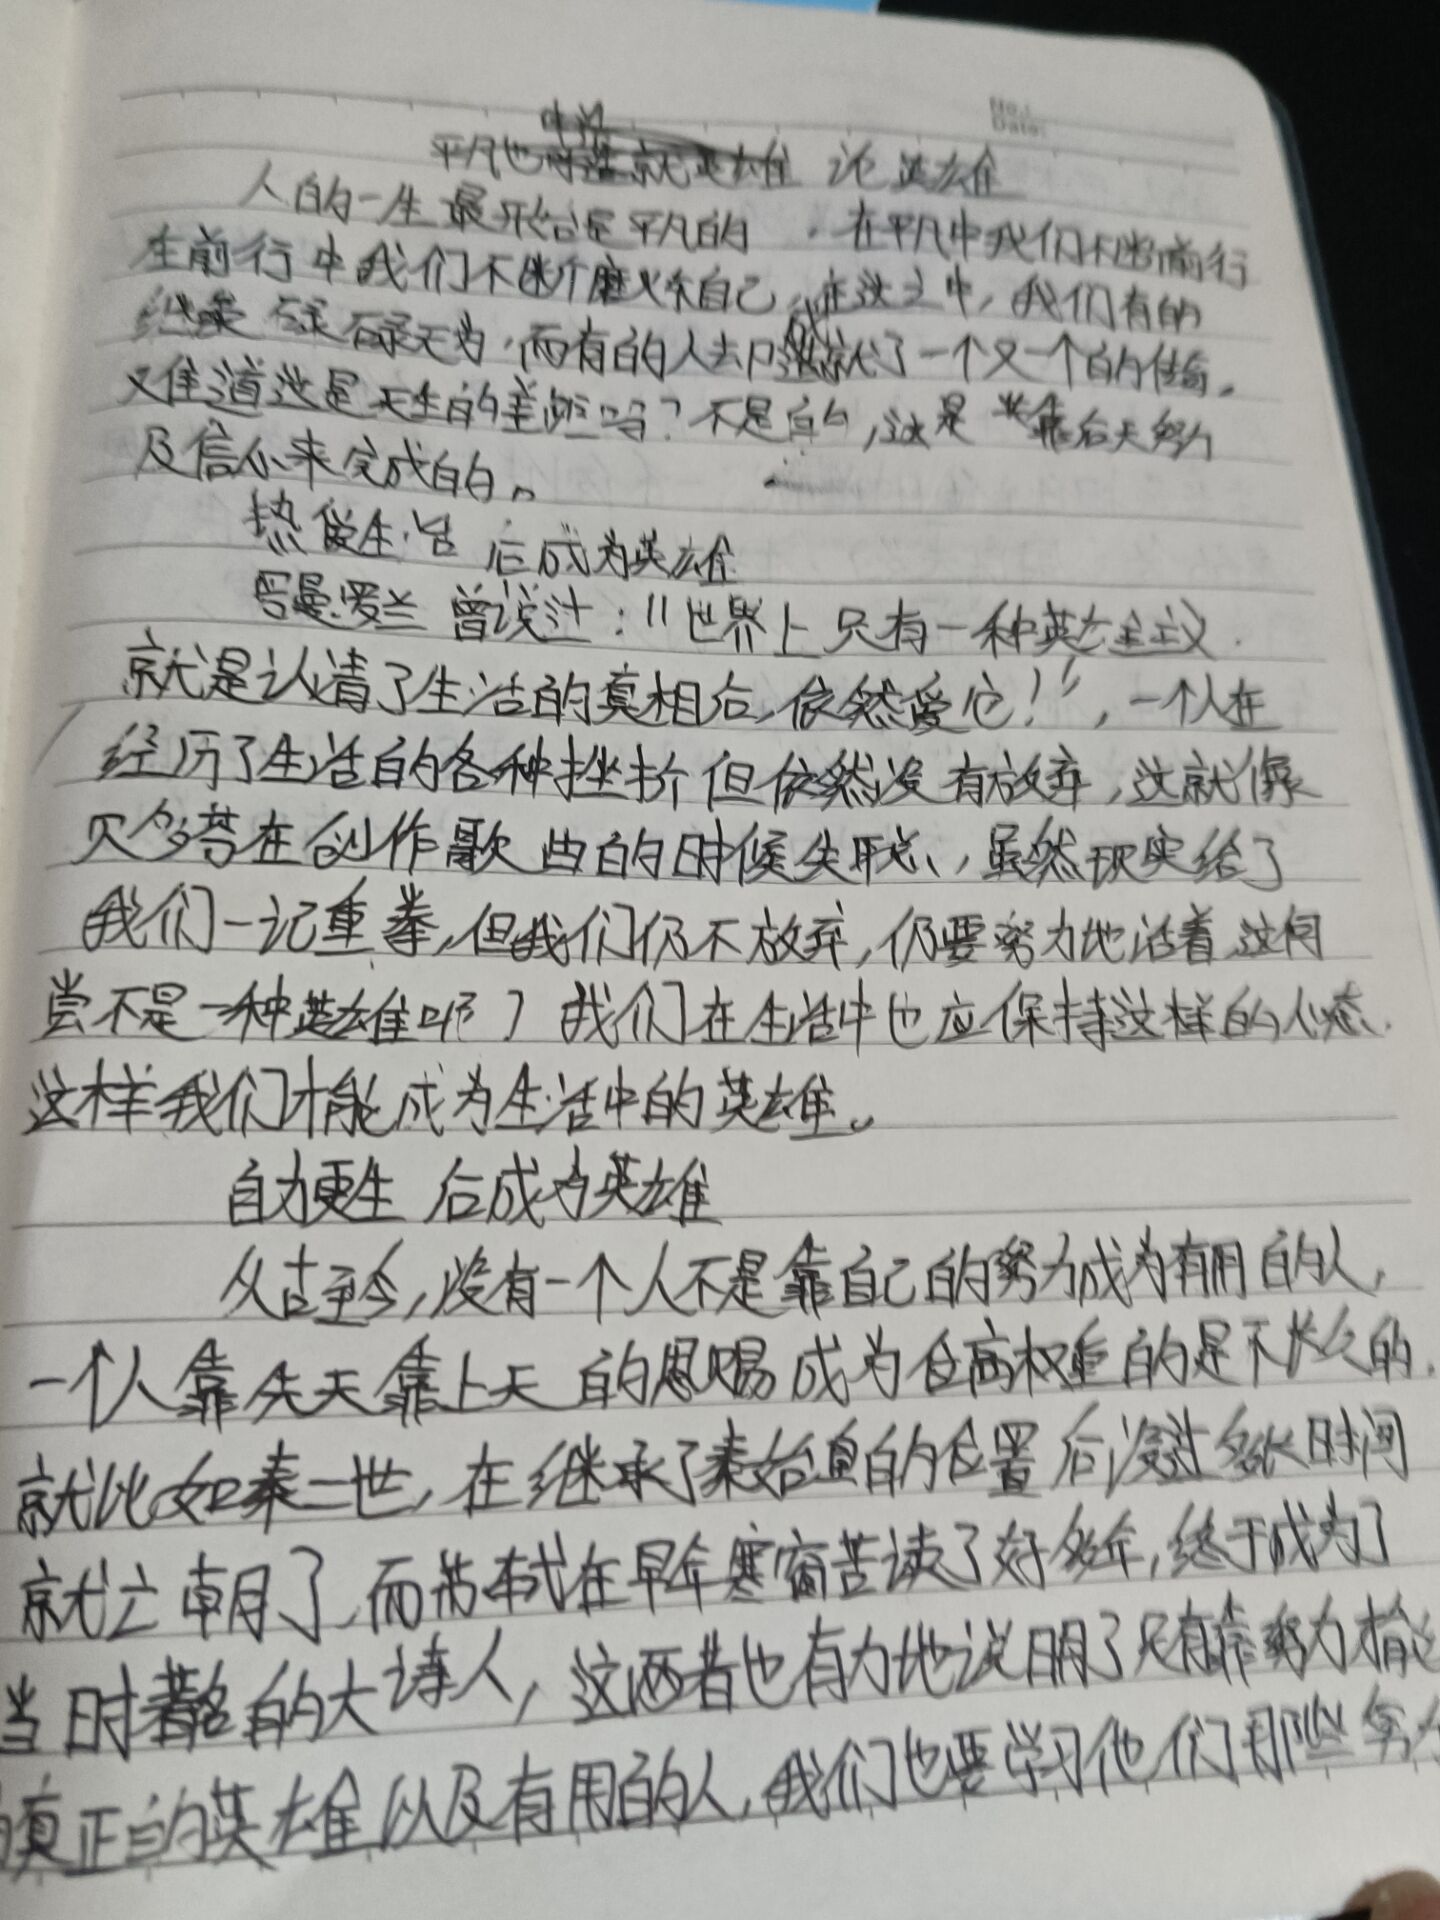 No.:
Date:
平凡也 就英雄 论英雄
人的一生最开始是平凡的,在平凡中我们不断前行
在前行中我们不断磨炼自己,在这之中,我们有的
继续碌碌无为,而有的人去成就了一个又一个的传
难道这是天生的差距吗?不是的,这是靠后天努力
及信心来完成的。
热爱生活 后成为英雄
罗曼罗兰曾说过:"世界上只有一种英雄主义.
就是认清了生活的真相后,依然爱它!",一个人在
经历了生活的各种挫折但依然没有放弃,这就像
贝多芬在创作歌曲的时候失聪,虽然现实给了
我们一记重拳,但我们仍不放弃,仍要努力地活着,这何
尝不是一种英雄呢?我们在生活中也应保持这样的心态,
这样我们才能成为生活中的英雄。
自力更生 后成为英雄
从古至今,没有一个人不是靠自己的努力成为有用的人,
一个人靠先天靠上天的恩赐成为位高权重的是不长久的.
就比如秦二世,在继承了秦始皇的位置后没过多长时间
就亡朝了,而苏轼在早年寒窗苦读了好多年,终于成为了
当时著名的大诗人,这两者也有力地说明了只有靠努力才能
真正的英雄以及有用的人,我们也要学习他们那些努力